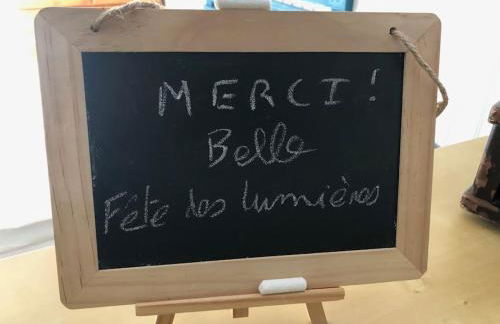 MERCI !
Belle
Fête des lumières